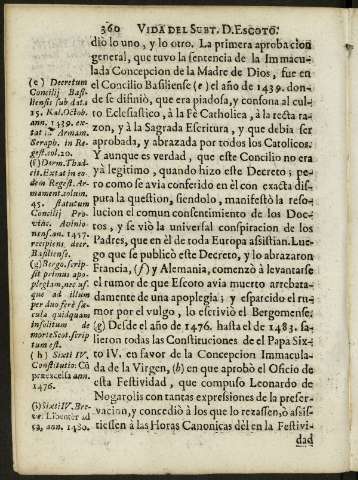 360 VIDA DEL SUBT. D. ESCOTO.
diò lo uno, y lo otro. La primera aprobacion
general, que tuvo la sentencia de la Immacu-
lada Concepcion de la Madre de Dios, fue en
el Concilio Basiliense (e) el año de 1439. don-
de se difiniò, que era piadosa, y consona al cul-
to Eclesiastico, à la Fè Catholica, à la recta ra-
zon, y à la Sagrada Escritura, y que debia ser
aprobada, y abrazada por todos los Catolicos.
Y aunque es verdad, que este Concilio no era
yà legitimo, quando hizo este Decreto; pe-
ro como se avia conferido en èl con exacta dis-
puta la question, siendolo, manifestò la reso-
lucion el comun consentimiento de los Doc-
tos, y se viò la universal conspiracion de los
Padres, que en èl de toda Europa assistian. Lue-
go que se publicò este Decreto, y lo abrazaron
Francia, (f) y Alemania, comenzò à levantarse
el rumor de que Escoto avia muerto arrebata-
damente de una apoplegia; y esparcido el ru-
mor por el vulgo, lo escriviò el Bergomense.
(g) Desde el año de 1476. hasta el de 1483. sa-
lieron todas las Constituciones de el Papa Six-
to IV. en favor de la Concepcion Immacula-
da de la Virgen, (h) en que aprobò el Oficio de
esta Festividad, que compuso Leonardo de
Nogarolis con tantas expressiones de la preser-
vacion, y concediò à los que lo rezassen, ò assis-
tiessen à las Horas Canonicas dèl en la Festivi-
dad
(e) Decretum
Concilij Basi-
liensis sub data
15. Kal. Octob.
ann. 1439. ex-
tat in Armam.
Seraph. in Re-
gest. col. 20.
(f) Derm. Thad-
eis. Extat in eo
dem Regest. Ar-
mament. colum.
45. statutum
Concilij Pro
vinc. Avinio-
nens. an. 1457.
recepiens decr.
Basiliense.
(g) Bergo. scrip-
sit primus apo-
plegiam, nec us-
que ad illum
per duo ferè sæ-
cula quidquam
insolitum de
morte Scot. scrip
tum est.
(h) Sixti IV.
Constitutio: Cū
præexcelsa ann.
1476.
(i) Sixti IV. Bre-
ve: Libenter ad
ea, ann. 1480.